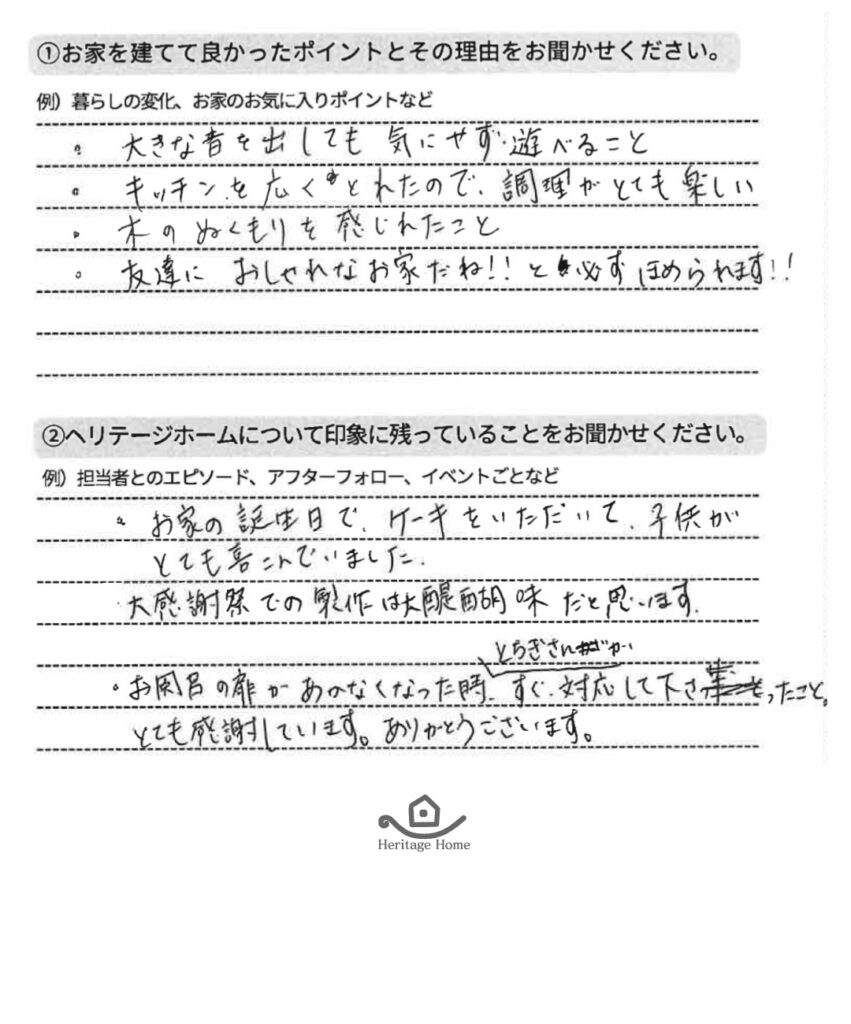 ①お家を建てて良かったポイントとその理由をお聞かせください。
例）暮らしの変化、お家のお気に入りポイントなど
。大きな音を出しても気にせず遊べること
。キッチンを広くとれたので、調理がとても楽しい
。木のぬくもりを感じれたこと
。友達に おしゃれなお家だね!!と必ずほめられます!!
②ヘリテージホームについて印象に残っていることをお聞かせください。
例）担当者とのエピソード、アフターフォロー、イベントごとなど
。お家の誕生日で、ケーキをいただいて、子供が
とても喜こんでいました.
・大感謝祭での製作は大醍醐味だと思います.
とちぎさんが
。お風呂の扉があかなくなった時、すぐ対応して下さったこと。
とても感謝しています。ありがとうございます。
Heritage Home